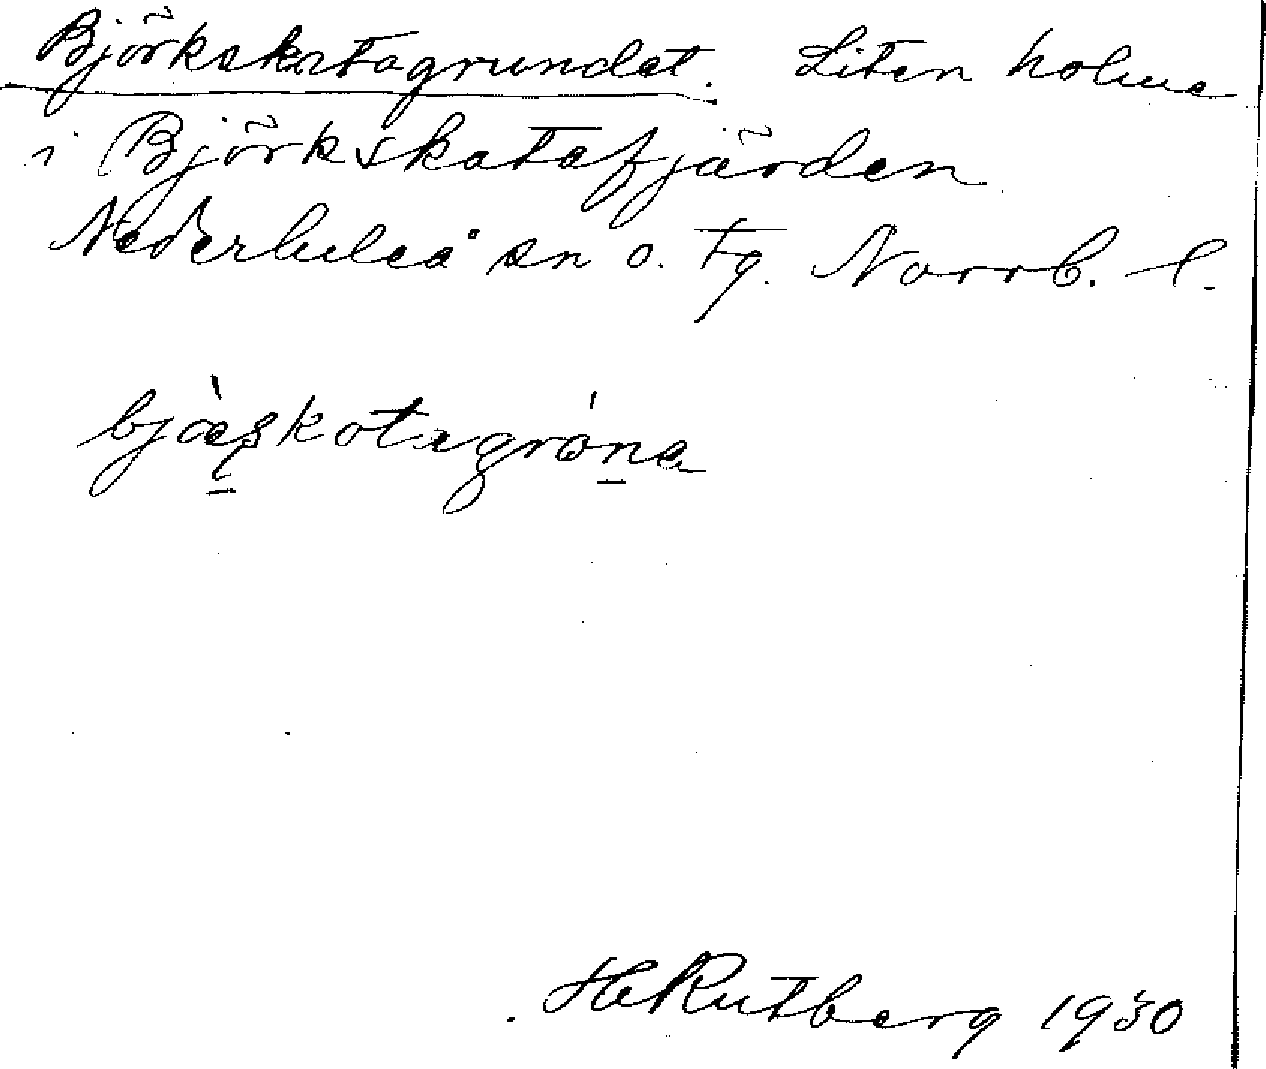 Björkskatagrundet. Liten holme
i Björkskatafjärden
Nederluleå sn o. tg. Norrb. l.
bjæ̀skotagróna
HRutberg 1930